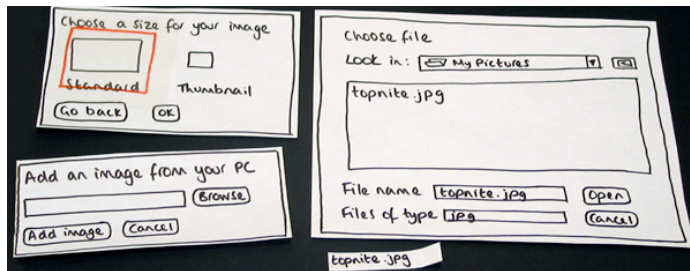 Choose a size for your image
Standard
Thumbnail
Go back OK
Add an image from your PC
Browse
Add image Cancel
Choose file
Look in: My Pictures
topnite.jpg
File name topnite.jpg Open
Files of type jpg Cancel
topnite.jpg